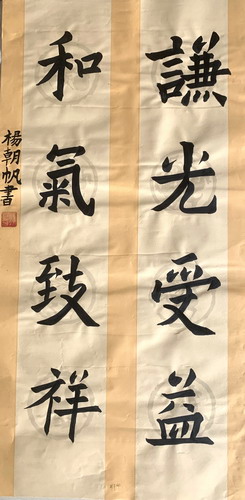 謙光受益
和氣致祥
楊朝帆書